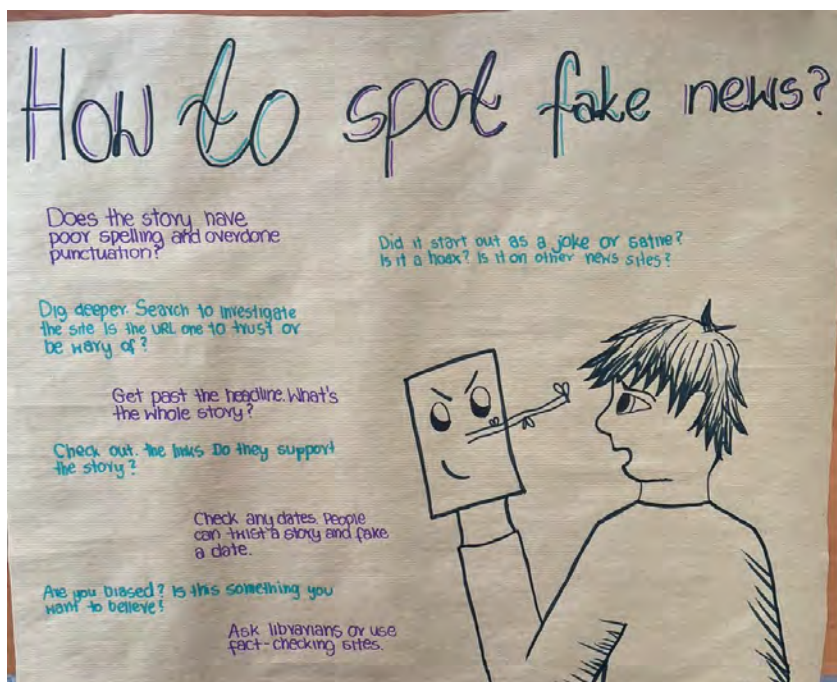 How to spot fake news?
Does the story have
poor spelling and overdone
punctuation?
Did it start out as a joke or satire?
Is it a hoax? Is it on other news sites?
Dig deeper. Search to investigate
the site Is the URL one to trust or
be wary of?
Get past the headline. What's
the whole story?
Check out. the links Do they support
the story?
Check any dates. People
can twist a story and fake
a date.
Are you biased? Is this something you
want to believe?
Ask librarians or use
fact-checking sites.